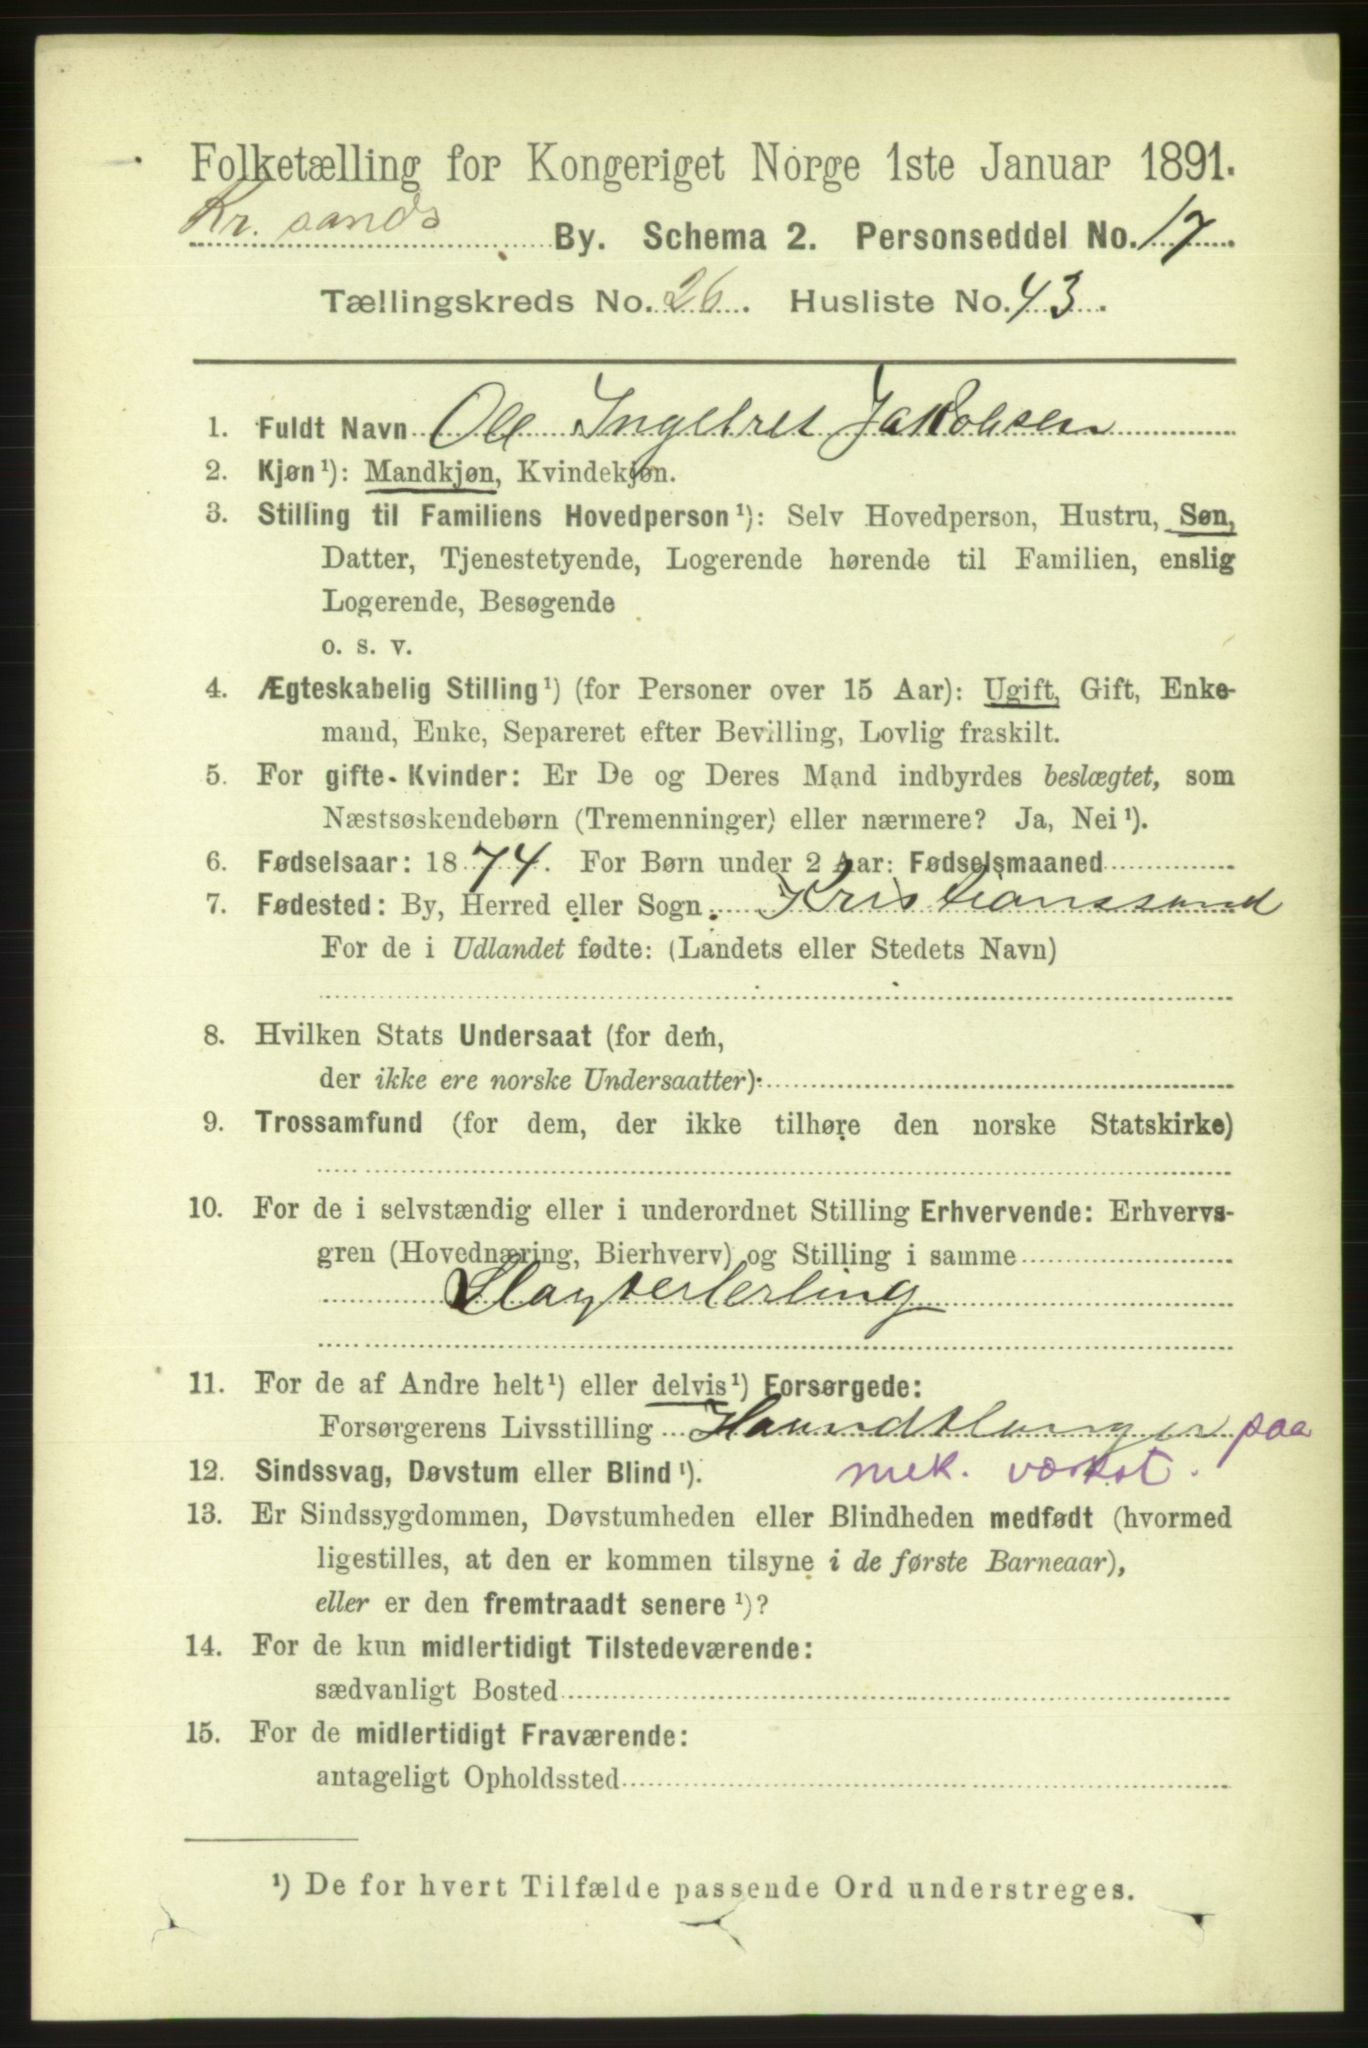 Folketælling for Kongeriget Norge 1ste Januar 1891.
Kr. sands By. Schema 2. Personseddel No. 17
Tællingskreds No. 26. Husliste No. 43.
1. Fuldt Navn Ole Ingebret Jakobsen
2. Kjøn¹): Mandkjøn, Kvindekjøn.
3. Stilling til Familiens Hovedperson¹): Selv Hovedperson, Hustru, Søn,
Datter, Tjenestetyende, Logerende hørende til Familien, enslig
Logerende, Besøgende
o. s. v.
4. Ægteskabelig Stilling¹) (for Personer over 15 Aar): Ugift, Gift, Enke-
mand, Enke, Separeret efter Bevilling, Lovlig fraskilt.
5. For gifte Kvinder: Er De og Deres Mand indbyrdes beslægtet, som
Næstsøskendebørn (Tremenninger) eller nærmere? Ja, Nei¹).
6. Fødselsaar: 1874. For Børn under 2 Aar: Fødselsmaaned
7. Fødested: By, Herred eller Sogn Kristianssand
For de i Udlandet fødte: (Landets eller Stedets Navn)
8. Hvilken Stats Undersaat (for dem,
der ikke ere norske Undersaatter)
9. Trossamfund (for dem, der ikke tilhøre den norske Statskirke)
10. For de i selvstændig eller i underordnet Stilling Erhvervende: Erhvervs-
gren (Hovednæring, Bierhverv) og Stilling i samme
11. For de af Andre helt¹) eller delvis¹) Forsørgede:
Forsørgerens Livsstilling paa
12. Sindssvag, Døvstum eller Blind¹). mek. værkst.
13. Er Sindssygdommen, Døvstumheden eller Blindheden medfødt (hvormed
ligestilles, at den er kommen tilsyne i de første Barneaar),
eller er den fremtraadt senere¹)?
14. For de kun midlertidigt Tilstedeværende:
sædvanligt Bosted
15. For de midlertidigt Fraværende:
antageligt Opholdssted
¹) De for hvert Tilfælde passende Ord understreges.